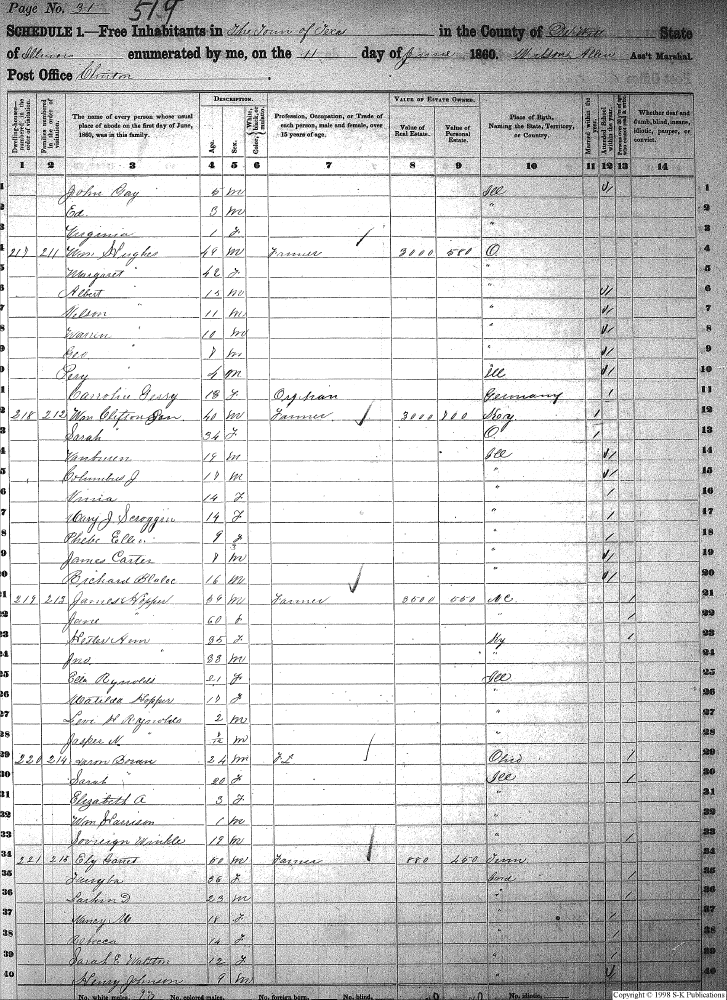 Page No. 31
519
SCHEDULE 1.—Free Inhabitants in The Town of Texa in the County of De Witt State
of Illinois enumerated by me, on the 11 day of June 1860. Ass't Marshal.
Post Office Clinton
Dwelling-houses—numbered in the order of visitation.
Families numbered in the order of visitation.
The name of every person whose usual place of abode on the first day of June, 1860, was in this family.
DESCRIPTION.
Age.
Sex.
Color, White, black, or mulatto.
Profession, Occupation, or Trade of each person, male and female, over 15 years of age.
VALUE OF ESTATE OWNED.
Value of Real Estate.
Value of Personal Estate.
Place of Birth, Naming the State, Territory, or Country.
Married within the year.
Attended School within the year.
Whether deaf and dumb, blind, insane, idiotic, pauper, or convict.
1 2 3 4 5 6 7 8 9 10 11 12 13 14
1 John Day 5 m Ill / 1
2 Ed. 3 m " 2
3 Virginia 1 f " 3
4 217 211 Wm Hughes 49 m Farmer 3000 580 O. 4
5 Margaret " 42 f " 5
6 Albert " 15 m " / 6
7 Nelson " 11 m " / 7
8 Warren " 10 m " / 8
9 Geo " 7 m " / 9
10 Pery " 4 m Ill / 10
11 Carroline Gerry 13 f Orphan Germany / 11
12 218 212 Wm Clifton 40 m Farmer 3000 700 Key / 12
13 Sarah 34 f O. / 13
14 Vanburen 19 m Ill / 14
15 Columbus J 17 m " / 15
16 14 f " / 16
17 Mary J Scroggin 14 f " / 17
18 Phebe Ellen 9 f " / 18
19 James Carter 8 m " / 19
20 Richard Blaloc 16 m " / 20
21 219 213 James Hopper 59 m Farmer 3500 550 NC / 21
22 Jane " 60 f " / 22
23 Hester Ann 35 f Ky / 23
24 Jno. 33 m " 24
25 Ella Reynolds 21 f Ill 25
26 Matilda Hopper 17 f " 26
27 Levi H Reynolds 2 m " 27
28 Jasper N. m " 28
29 220 214 Aaron Boran 24 m F L Ohio / 29
30 Sarah " 20 f Ill / 30
31 Elizabeth A 3 f " 31
32 Wm Harrison 1 m " 32
33 Sovreign Winkle 19 m " / 33
34 221 215 Ely 50 m Farmer 880 450 Tenn 34
35 36 f Ind / 35
36 Larkin D 23 m " 36
37 Nancy M 18 f " / 37
38 Rebecca 14 f " / 38
39 Sarah E Walston 12 f " / 39
40 Henry Johnson 9 m " / 40
No. white males, No. colored males, No. foreign born, No. blind, 0 0 No. idiotic,
Copyright © 1998 S-K Publications